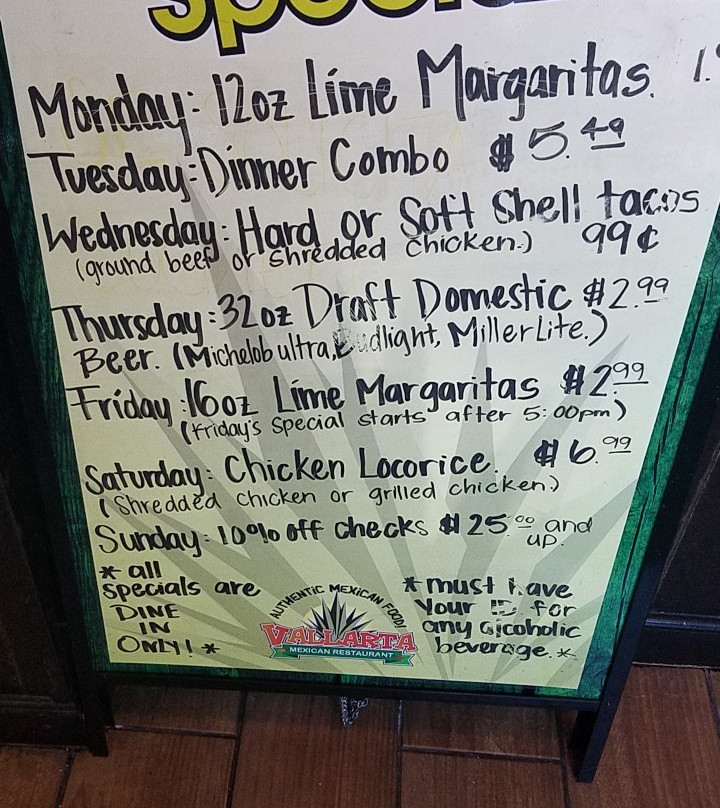 Specials
Monday: 12oz Lime Margaritas. 1.
Tuesday: Dinner Combo $5.49
Wednesday: Hard or Soft Shell tacos
(ground beef or Shredded Chicken.) 99¢
Thursday: 32oz Draft Domestic $2.99
Beer. (Michelob ultra, Budlight, Miller Lite.)
Friday: 16oz Lime Margaritas $2.99
(Friday's Special starts after 5:00pm)
Saturday: Chicken Locorice. $6.99
(Shredded chicken or grilled chicken.)
Sunday: 10% off checks $25.00 and
up.
* all
specials are
DINE
IN
ONLY! *
AUTHENTIC MEXICAN FOOD!
VALLARTA
MEXICAN RESTAURANT
* must have
Your ID for
any alcoholic
beverage. *